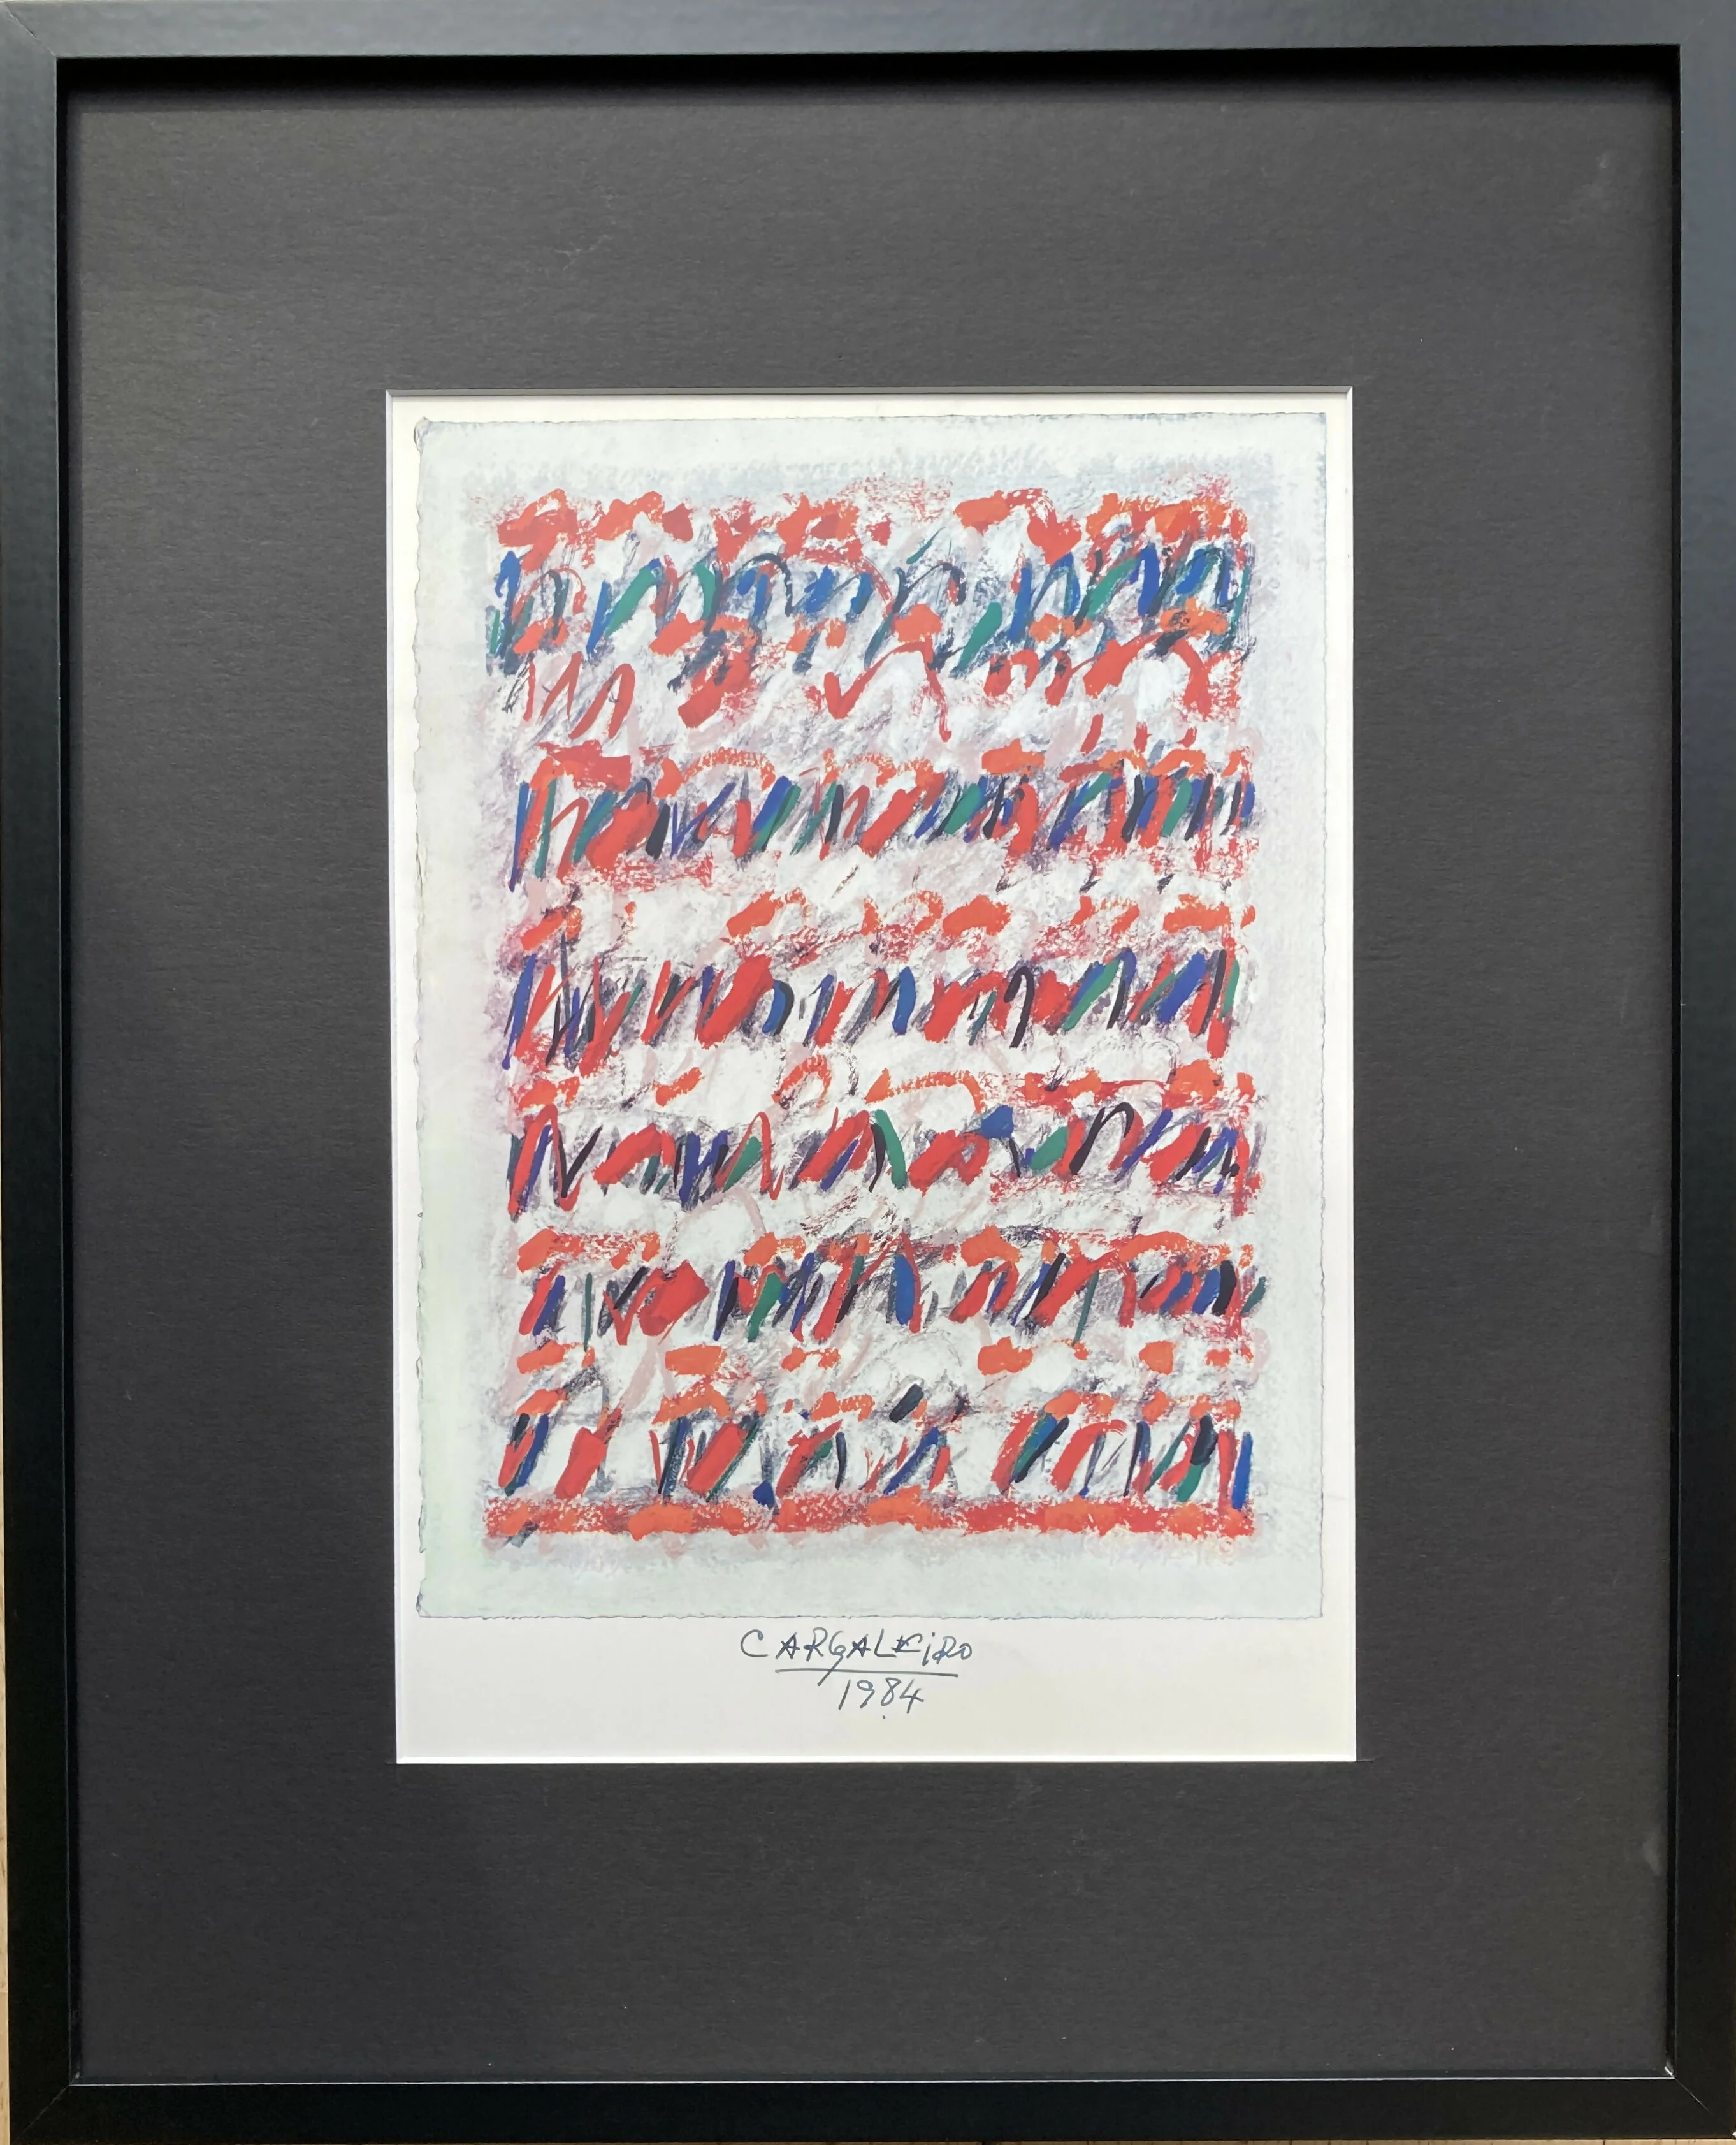 CARGALEiRO
1984